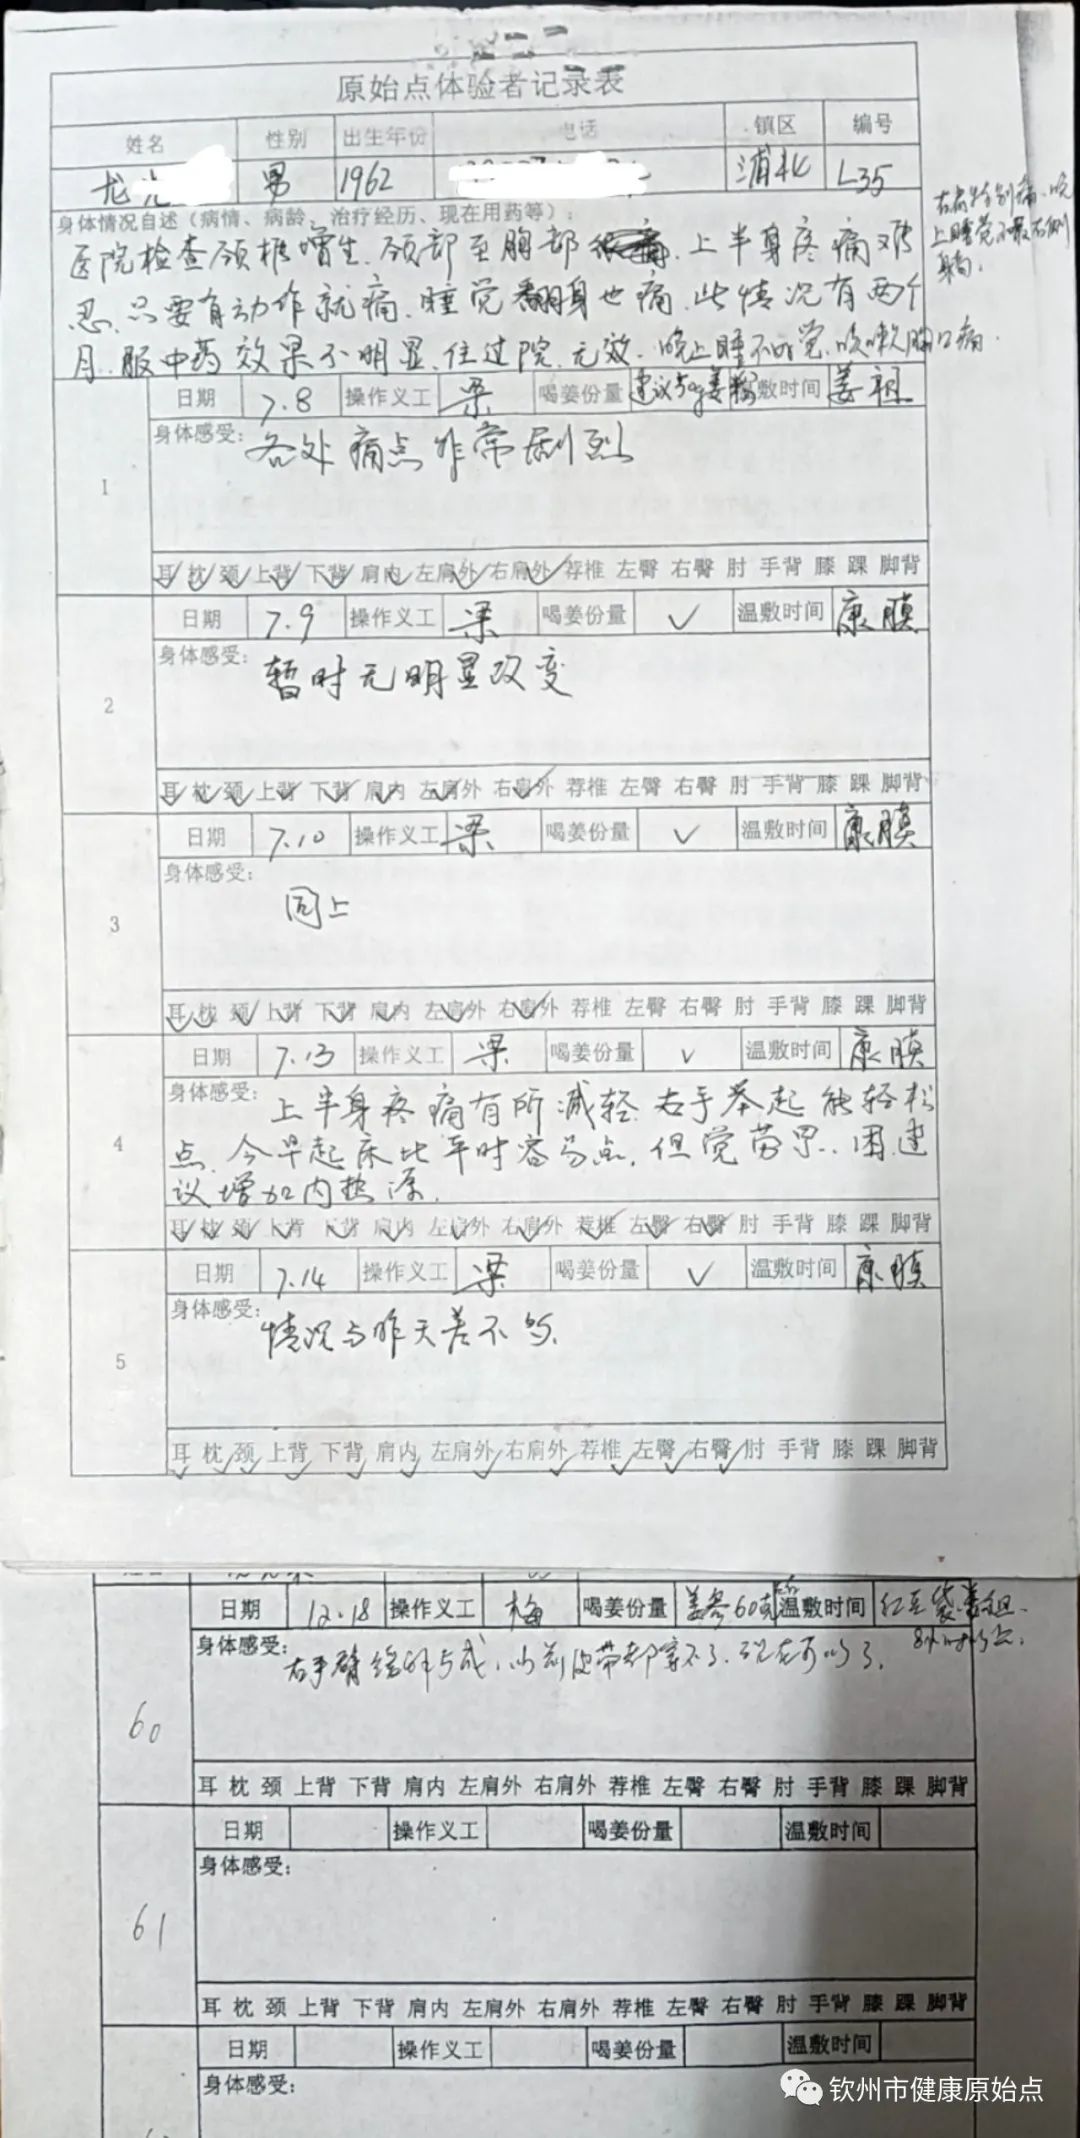 原始点体验者记录表
姓名 性别 出生年份 电话 镇区 编号
龙 男 1962 浦北 L35
身体情况自述（病情、病龄、治疗经历、现在用药等）：
医院检查颈椎增生.颈部至胸部 上半身疼痛难
忍.只要有动作就痛.睡觉翻身也痛.此情况有两个
月.服中药效果不明显.住过院.无效.晚上睡不好觉.咳嗽胸口痛.
右肩特别痛.晚
上睡觉不敢右侧
身.
日期 7.8 操作义工 梁 喝姜份量 建议 姜粉 温敷时间 姜袓
1
身体感受：各处痛点非常剧烈
耳 枕 颈 上背 下背 肩内 左肩外 右肩外 荐椎 左臀 右臀 肘 手背 膝 踝 脚背
日期 7.9 操作义工 梁 喝姜份量 ✓ 温敷时间 康膜
2
身体感受：暂时无明显改变
耳 枕 颈 上背 下背 肩内 左肩外 右肩外 荐椎 左臀 右臀 肘 手背 膝 踝 脚背
日期 7.10 操作义工 梁 喝姜份量 ✓ 温敷时间 康膜
3
身体感受：同上
耳 枕 颈 上背 下背 肩内 左肩外 右肩外 荐椎 左臀 右臀 肘 手背 膝 踝 脚背
日期 7.13 操作义工 梁 喝姜份量 ✓ 温敷时间 康膜
4
身体感受：上半身疼痛有所减轻.右手举起能轻松
点.今早起床比平时容易点.但觉劳累.困.建
议增加内热源.
耳 枕 颈 上背 下背 肩内 左肩外 右肩外 荐椎 左臀 右臀 肘 手背 膝 踝 脚背
日期 7.14 操作义工 梁 喝姜份量 ✓ 温敷时间 康膜
5
身体感受：情况与昨天差不多.
耳 枕 颈 上背 下背 肩内 左肩外 右肩外 荐椎 左臀 右臀 肘 手背 膝 踝 脚背
日期 12.18 操作义工 梅 喝姜份量 姜参60克 温敷时间 红豆袋
60
身体感受：右手臂 以前皮带都穿不了.现在可以了.
耳 枕 颈 上背 下背 肩内 左肩外 右肩外 荐椎 左臀 右臀 肘 手背 膝 踝 脚背
日期 操作义工 喝姜份量 温敷时间
61
身体感受：
耳 枕 颈 上背 下背 肩内 左肩外 右肩外 荐椎 左臀 右臀 肘 手背 膝 踝 脚背
日期 操作义工 喝姜份量 温敷时间
身体感受：
钦州市健康原始点